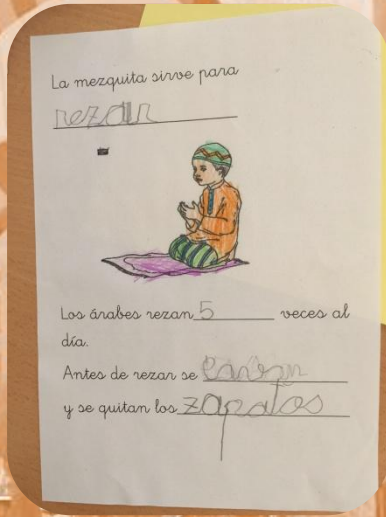 La mezquita sirve para
rezar
Los árabes rezan 5 veces al
día.
Antes de rezar se
y se quitan los zapatos